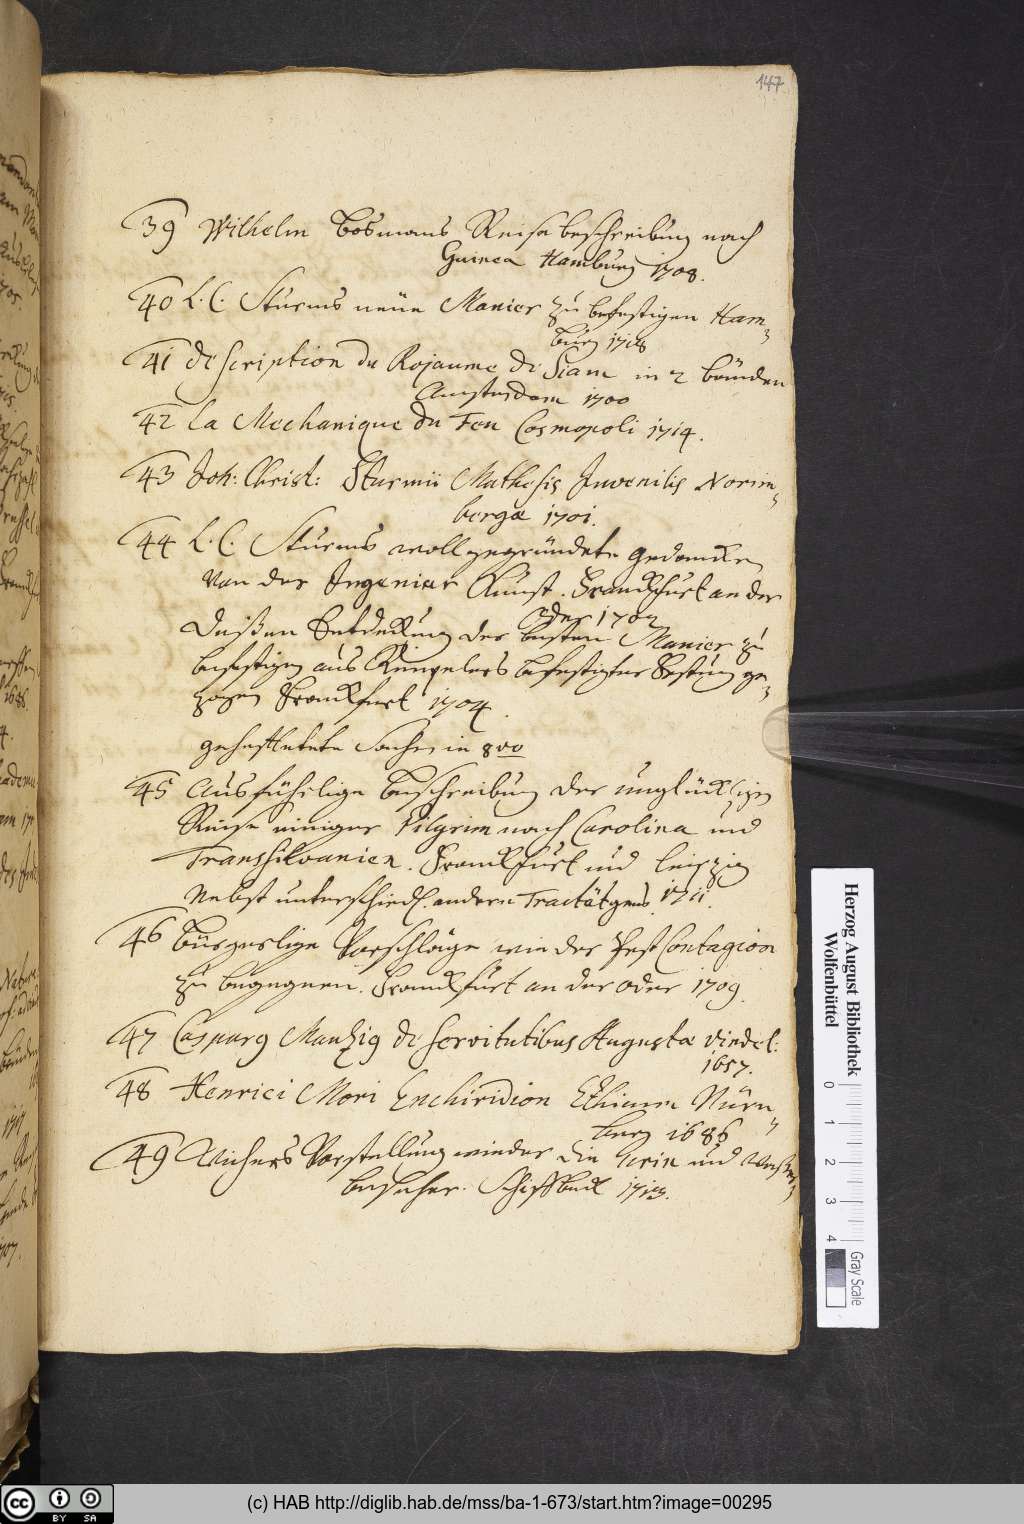 147
39 Wilhelm Bosmans Reisebeschreibung nach
Guinea Hamburg 1708.
40 L. C. Sturms neue Manier zu befestigen Ham-
burg 1718
41 description du Rojaume de Siam in 2 bänden
Amsterdam 1700
42 La Mechanique du Feu Cosmopoli 1714.
43 Joh: Christ: Sturmii Mathesis Juvenilis Norim-
bergæ 1701.
44 L. C. Sturms wollgegründete Gedancken
Von der Ingenieur Kunst. Franckfurt an der
Oder 1702
Deißen Entdeckung der besten Manier zu
befestigen aus Rimplers befestigter Festung ge-
zogen Franckfurt 1704.
geheftete Sachen in 8vo
45 Ausführlige Beschreibung der unglücklichen
Reise einiger Pilgrim nach Carolina und
Transsilvanien. Franckfurt und Leipzig
Nebst unterschiedl. andern Tractätgens 1711.
46 Bürgerlige Vorschläge wie der Pest Contagion
zu begegnen. Franckfurt an der Oder 1709.
47 Casparg Manhig de Servitutibus Augustæ Vindel:
1657.
48 Henrici Mori Enchiridion Ethicum Nürn-
berg 1686
49 Wichers Vorstellung wieder die Urin und Waßer-
beseher. Schiffbeck 1713.
Herzog August Bibliothek
Wolfenbüttel
0 1 2 3 4
Gray Scale
cc BY SA
(c) HAB http://diglib.hab.de/mss/ba-1-673/start.htm?image=00295